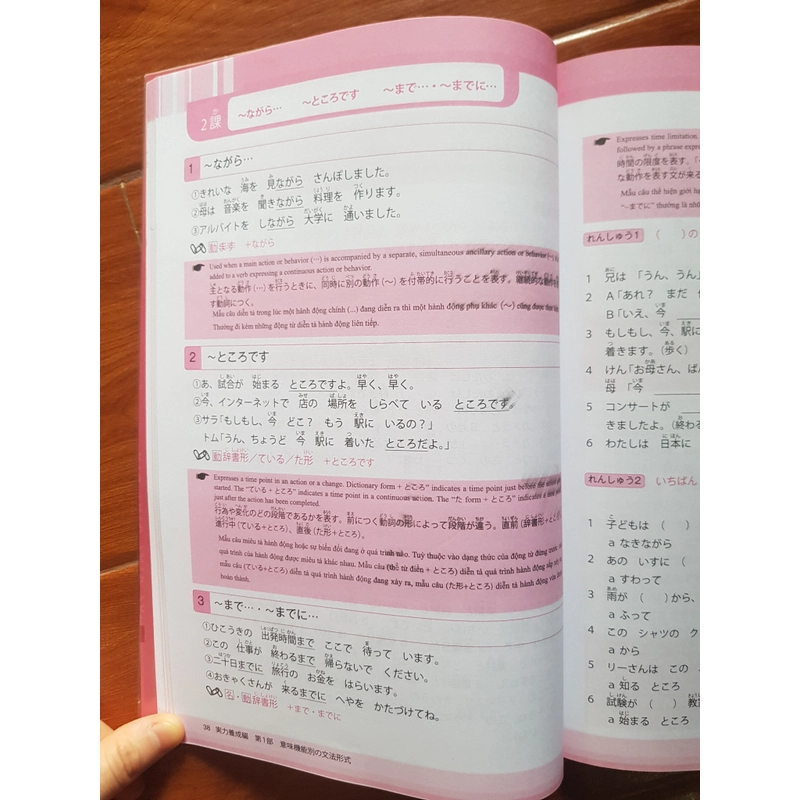 2課
～ながら…　～ところです　～まで…・～までに…
1 ～ながら…
①きれいな 海を 見ながら さんぽしました。
②母は 音楽を 聞きながら 料理を 作ります。
③アルバイトを しながら 大学に 通いました。
動ます +ながら
Used when a main action or behavior (…) is accompanied by a separate, simultaneous ancillary action or behavior
added to a verb expressing a continuous action or behavior.
主となる動作(…)を行うときに、同時に別の動作(～)を付帯的に行うことを表す。継続的な動作を
す動詞につく。
Mẫu câu diễn tả trong lúc một hành động chính (...) đang diễn ra thì một hành động phụ khác (～) cũng được thực hiện
Thường đi kèm những động từ diễn tả hành động liên tiếp.
2 ～ところです
①あ、試合が 始まる ところですよ。早く、早く。
②今、インターネットで 店の 場所を しらべて いる ところです。
③サラ「もしもし、今 どこ? もう 駅に いるの?」
トム「うん、ちょうど 今 駅に 着いた ところだよ。」
動辞書形/ている/た形 +ところです
Expresses a time point in an action or a change. Dictionary form + ところ" indicates a time point just before the action
started. The "ている + ところ" indicates a time point in a continuous action. The "た form + ところ" indicates a time
just after the action has been completed.
行為や変化のどの段階であるかを表す。前につく動詞の形によって段階が違う。直前(辞書形+ところ)
進行中(ている+ところ)、直後(た形+ところ)。
Mẫu câu diễn tả hành động hoặc sự biến đổi đang ở quá trình nào. Tuỳ thuộc vào dạng thức của động từ đứng trước
quá trình của hành động được miêu tả khác nhau. Mẫu câu (thể từ điển + ところ) diễn tả quá trình hành động sắp
mẫu câu (ている+ところ) diễn tả quá trình hành động đang xảy ra, mẫu câu (た形+ところ) diễn tả hành động vừa
hoàn thành.
3 ～まで…・～までに…
①ひこうきの 出発時間まで ここで 待って います。
②この 仕事が 終わるまで 帰らないで ください。
③二十日までに 旅行の お金を はらいます。
④おきゃくさんが 来るまでに へやを かたづけてね。
名・動辞書形 +まで・までに
38 実力養成編 第1部 意味機能別の文法形式
Expresses time limitation,
followed by a phrase expres
時間の限度を表す。
な動作を表す文が来る
Mẫu câu thể hiện giới hạ
"～までに" thường là nhữ
れんしゅう1 ( )の
1 兄は「うん、うん」
2 A「あれ? まだ
B「いえ、今
3 もしもし、今、駅に
着きます。(歩く)
4 けん「お母さん、ばん
母「今
5 コンサートが
きましたよ。(終わる
6 わたしは 日本に
れんしゅう2 いちばん
1 子どもは ( )
a なきながら
2 あの いすに (
a すわって
3 雨が ( )から、
a ふって
4 この シャツの ク
a から
5 リーさんは この
a 知る ところ
6 試験が ( ) 教
a 始まる ところ